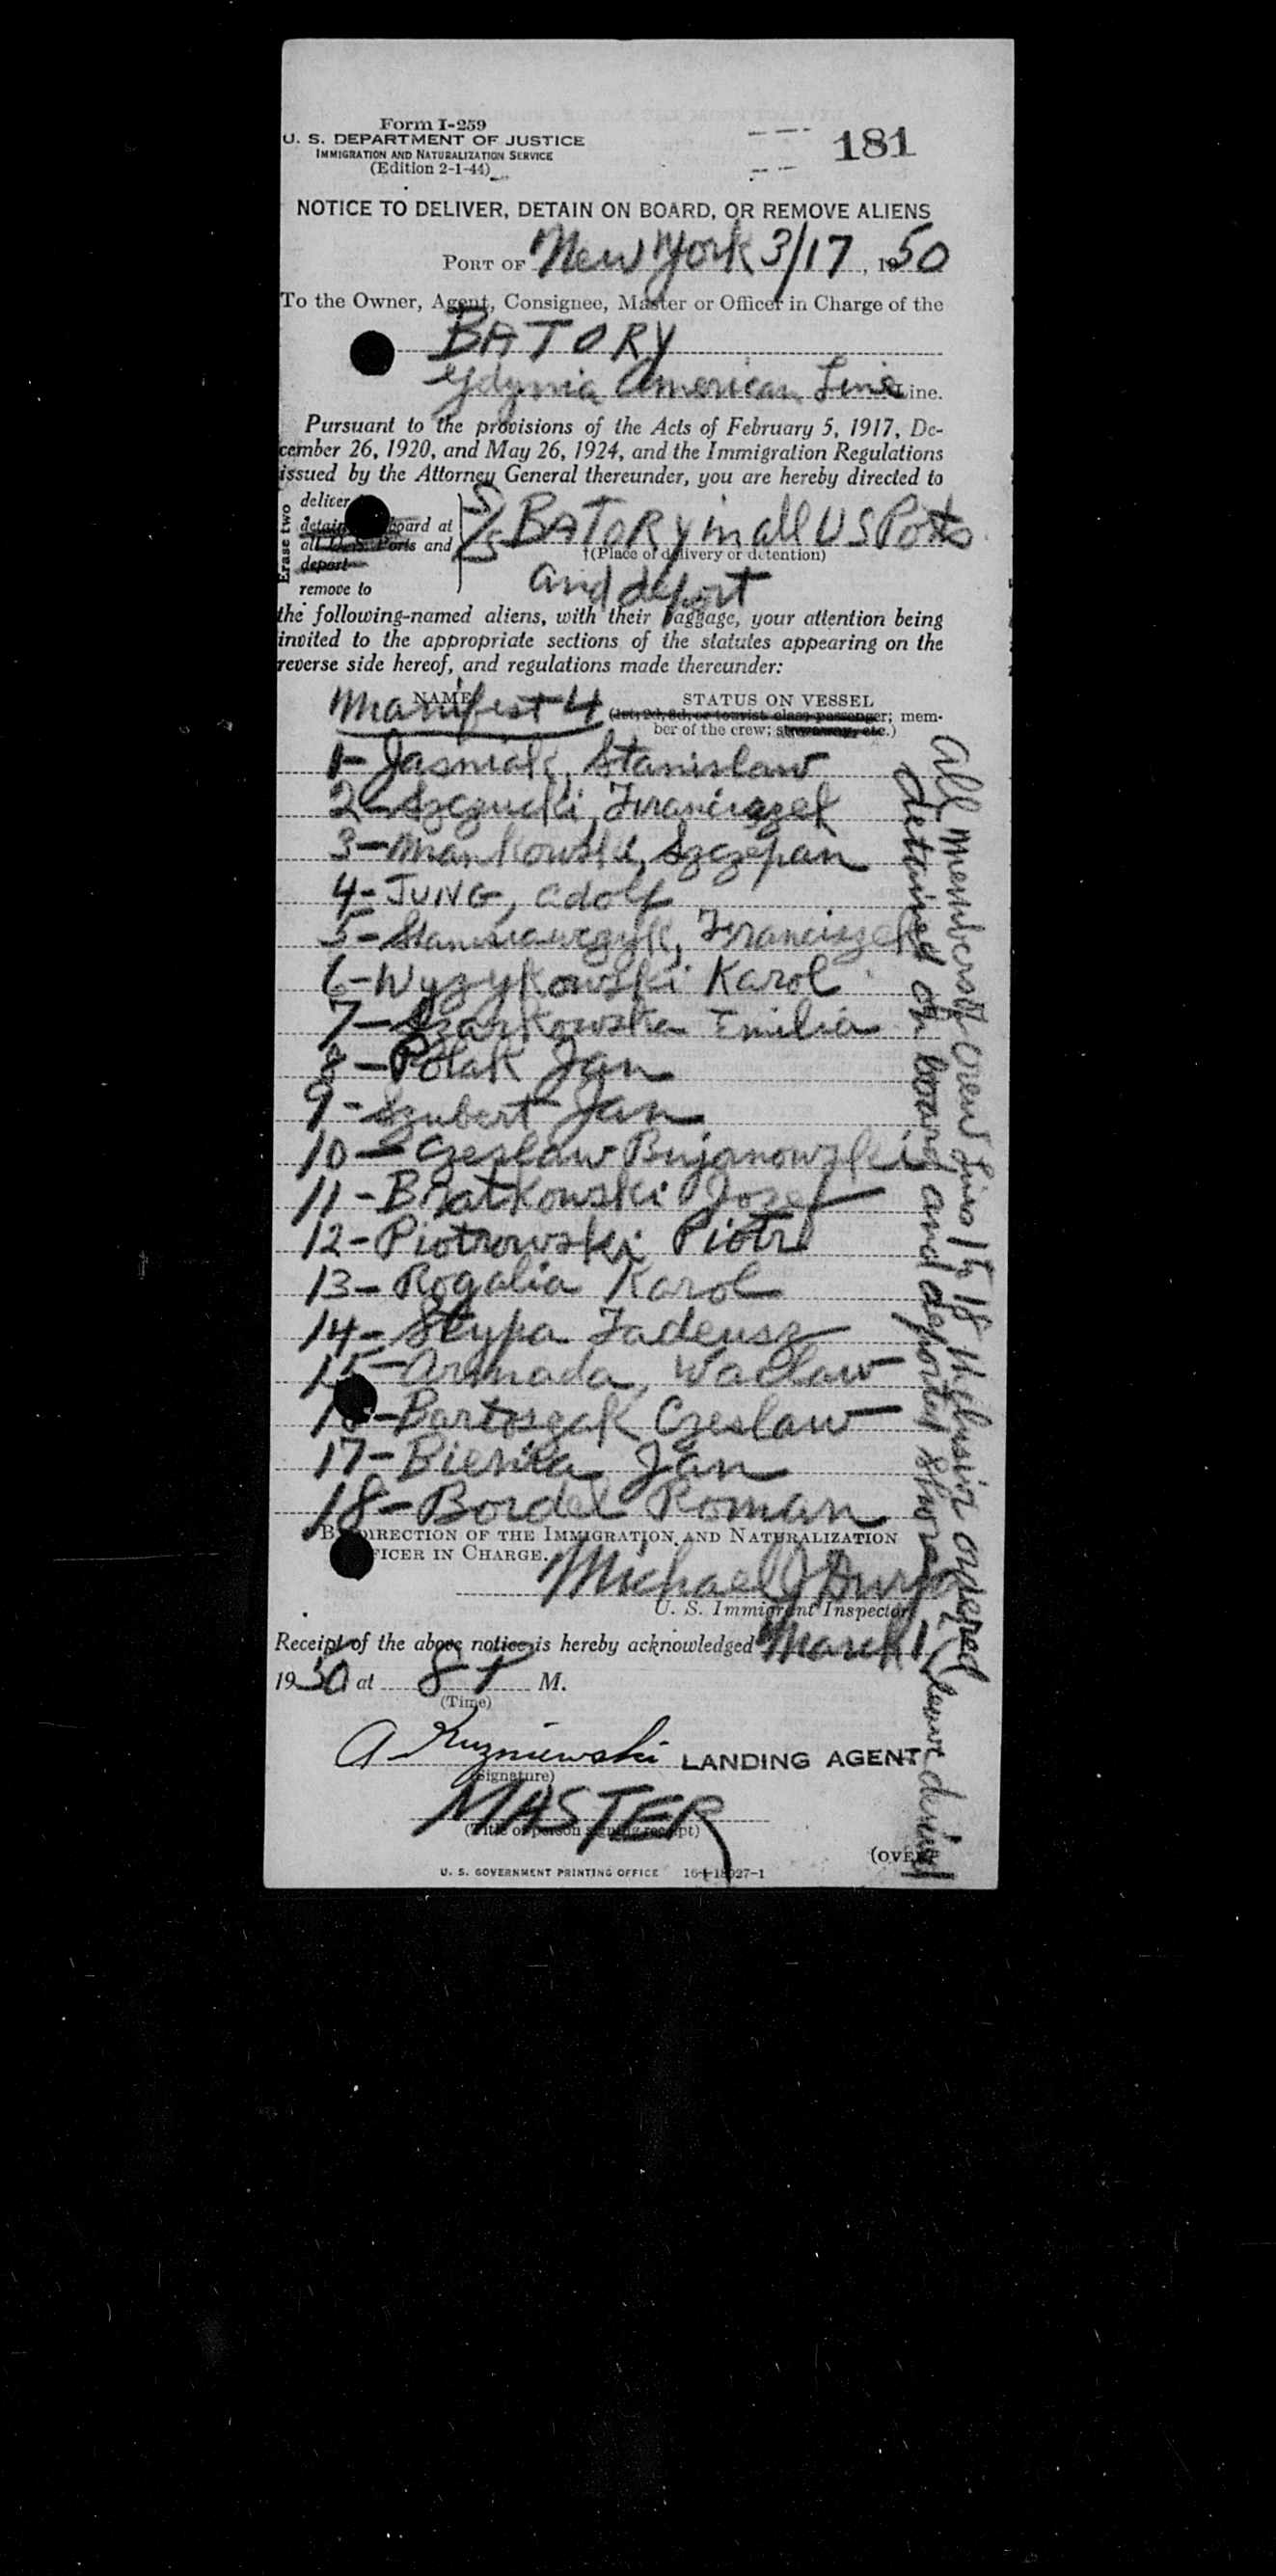 Form I-259
U. S. DEPARTMENT OF JUSTICE
IMMIGRATION AND NATURALIZATION SERVICE
(Edition 2-1-44)
181
NOTICE TO DELIVER, DETAIN ON BOARD, OR REMOVE ALIENS
PORT OF New York 3/17, 1950
To the Owner, Agent, Consignee, Master or Officer in Charge of the
BATORY
Gdynia American Line Line.
Pursuant to the provisions of the Acts of February 5, 1917, De-
cember 26, 1920, and May 26, 1924, and the Immigration Regulations
issued by the Attorney General thereunder, you are hereby directed to
Erase two
deliver
detain board at
all U. S. Ports and
deport
remove to
S/S BATORY in all US Ports
†(Place of delivery or detention)
and deport
the following-named aliens, with their baggage, your attention being
invited to the appropriate sections of the statutes appearing on the
reverse side hereof, and regulations made thereunder:
NAME STATUS ON VESSEL
Manifest 4 (1st, 2d, 3d, or tourist class passenger; mem-
ber of the crew; stowaway, etc.)
1- Jasniak, Stanislaw
2- Szczucki, Franciszek
3- Mankowski, Szczepan
4- JUNG, Adolf
5- Franciszek
6- Wyzykowski Karol
7- Szarkowska Emilia
8- Polak Jan
9- Szubert Jan
10- Czeslaw Bujanowski
11- Bratkowski Jozef
12- Piotrowski Piotr
13- Rogalia Karol
14- Stypa Tadeusz
15- Armada, Waclaw
16- Bartoszak Czeslaw
17- Bienia Jan
18- Bordel Roman
All members of crew Lines 1 to 18 inclusive ordered
detained on board and deported shore leave denied
BY DIRECTION OF THE IMMIGRATION AND NATURALIZATION
OFFICER IN CHARGE.
Michael J
U. S. Immigrant Inspector
Receipt of the above notice is hereby acknowledged March 1
1950 at 8 P M.
(Time)
A Kuzniewski LANDING AGENT
(Signature)
MASTER
(Title of person signing receipt)
(OVER)
U. S. GOVERNMENT PRINTING OFFICE 16-18027-1